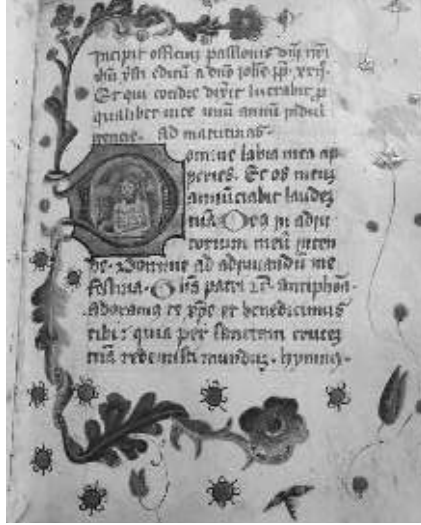 Incipit officiũ passionis dñi nr̃i
ihũ xp̃i editũ a dño johe p̃p xxij.
Et qui cotidie dixerit lucrabit̃ p̃
qualibet vice unũ annũ indul
gencie. Ad matutinas.
Domine labia mea ap
peries. Et os meuʒ
annũciabit laudeʒ
tuã. Deus in adiu
torium meũ inten
de. Domine ad adiuvandũ me
festina. Gl̃ia patri ⁊c̃. antiphon̄.
Adoramꝰ te xp̃e et benedicimus
tibi: quia per sanctam cruceʒ
tuã redemisti mundũ. hymnꝰ.